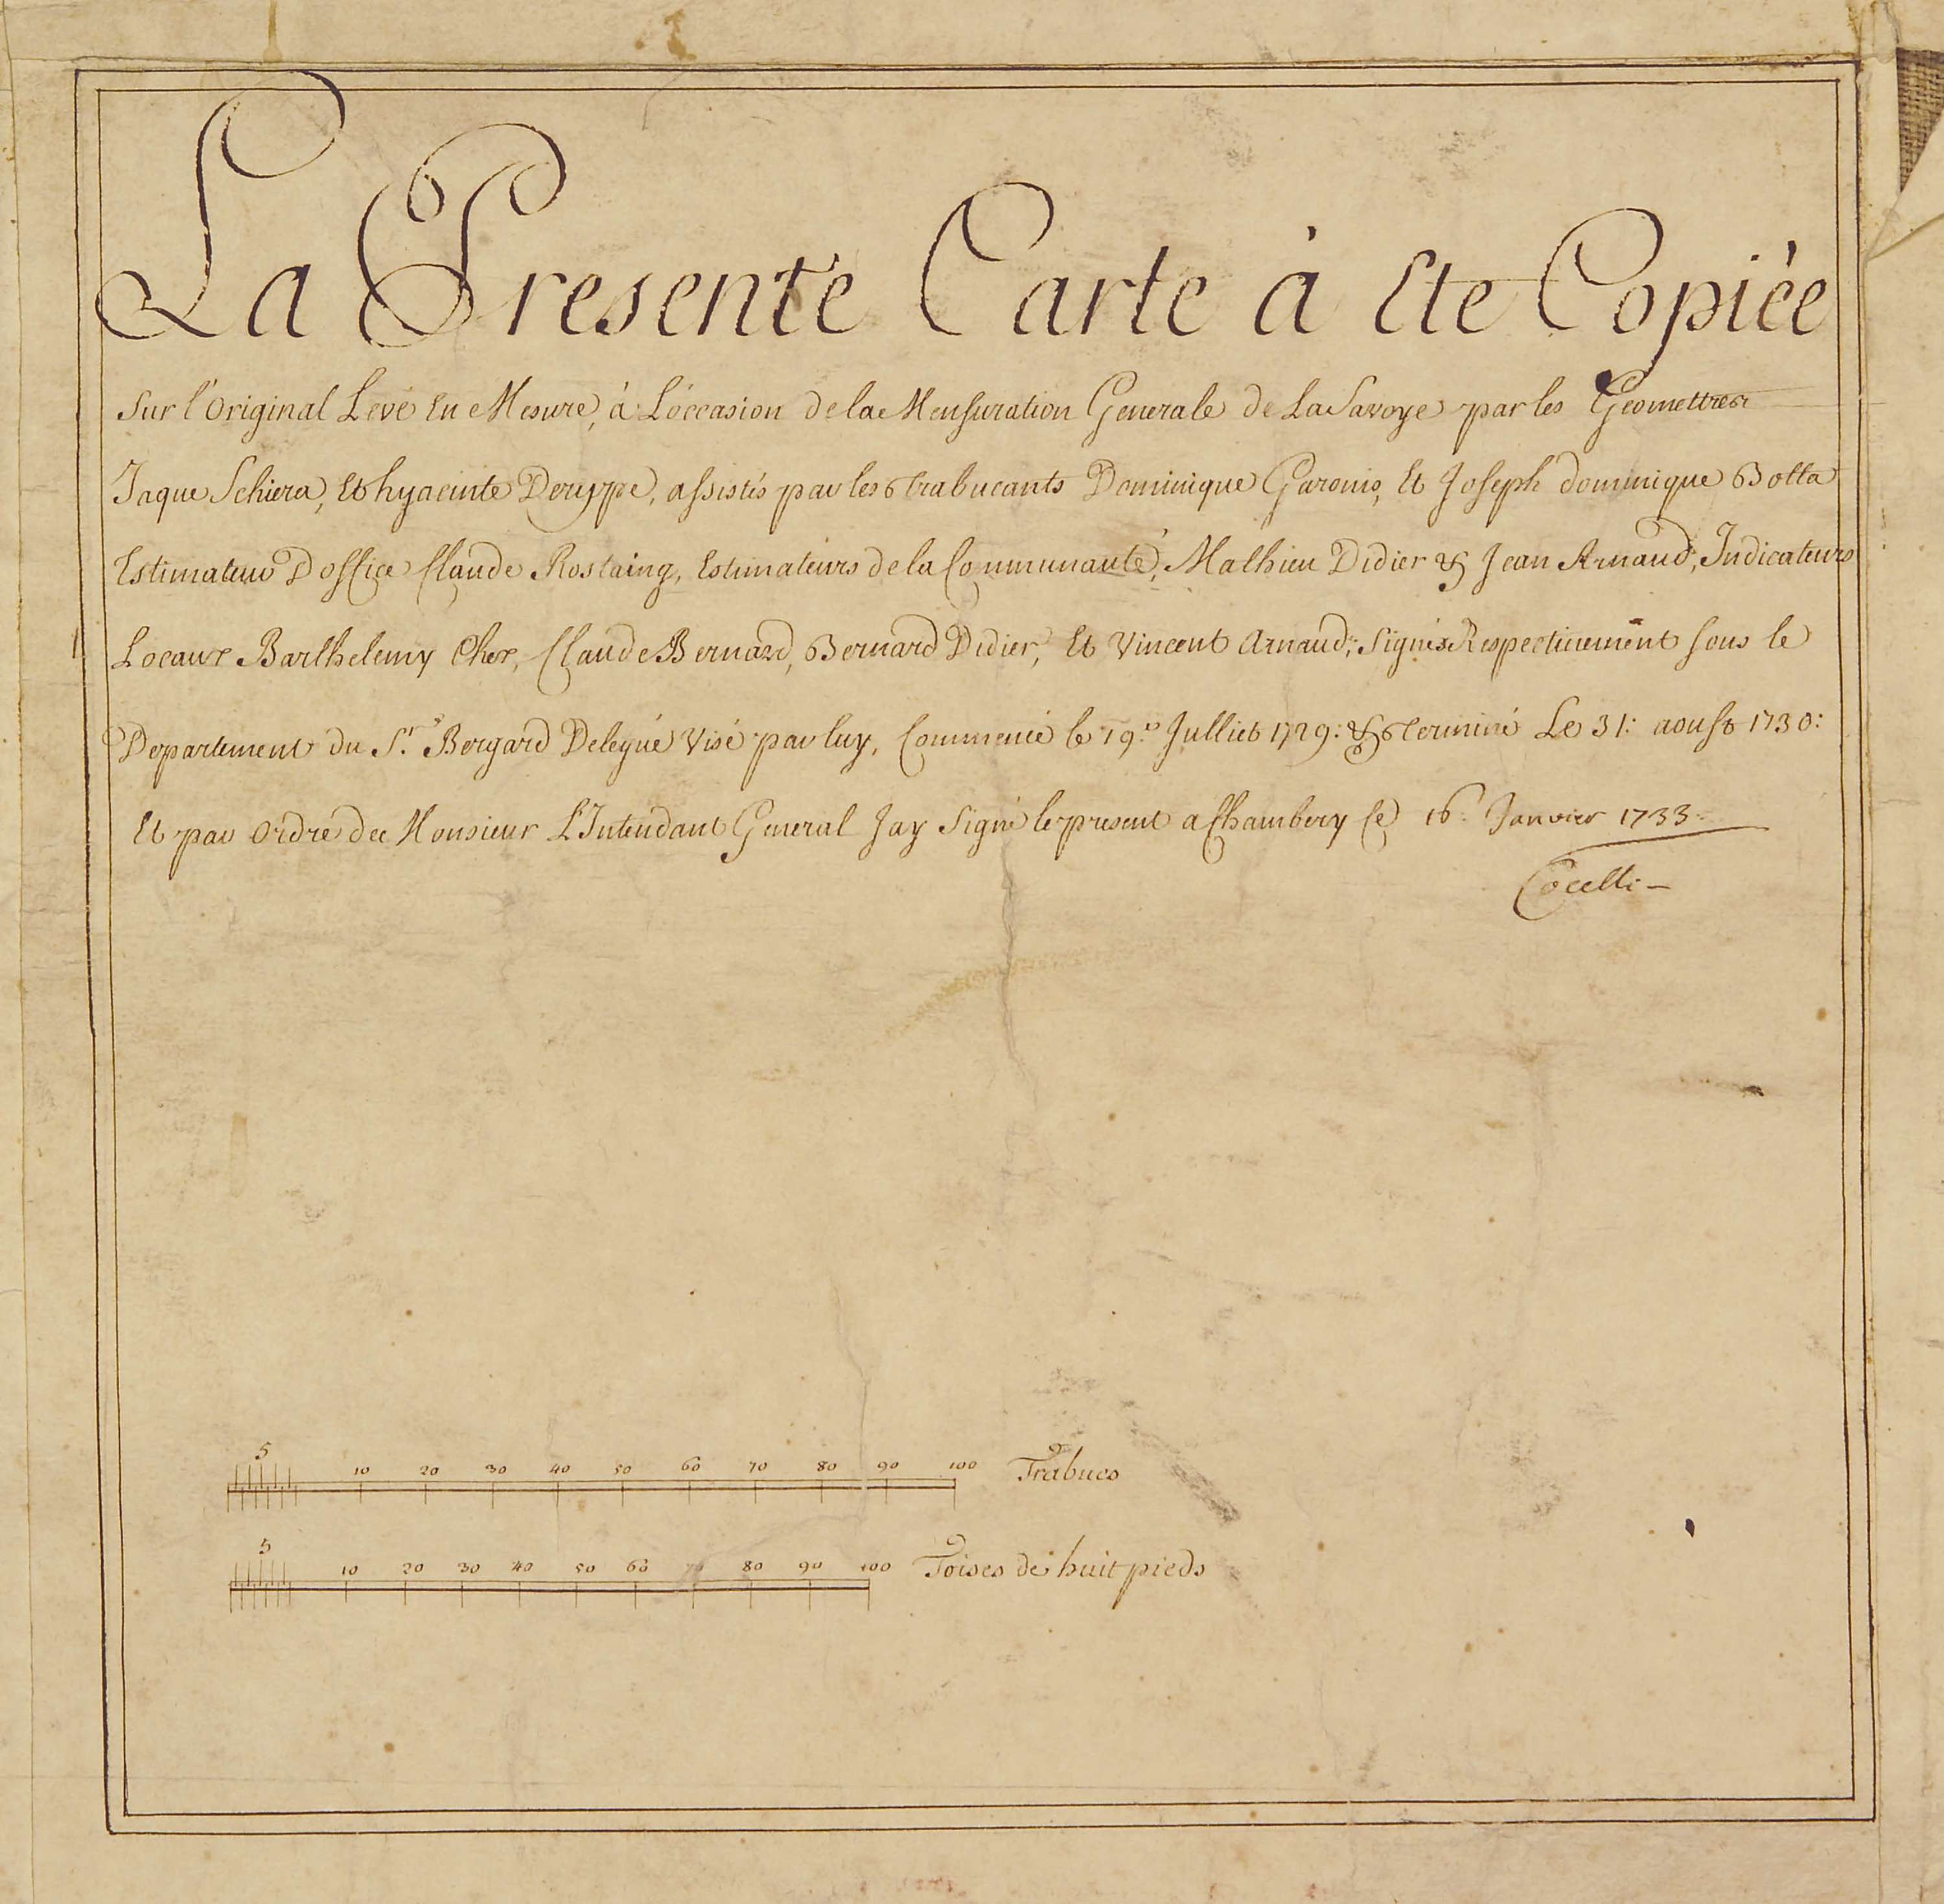 La Presente Carte à Ete Copiée
Sur l'Original Levé En Mesure, à L'occasion de la Mensuration Generale de La Savoye par les Geomettres
Jaque Schiera, Et hyacinte Deryppe, assistés par les Trabucants Dominique Garonis, Et Joseph dominique Botta
Estimateur D'office Claude Rostaing, Estimateurs de la Communauté, Mathieu Didier & Jean Arnaud, Indicateurs
Locaux Barthelemy Cher, Claude Bernard, Bernard Didier, Et Vincent Arnaud, Signés Respectivement sous le
Departement du S.r Bergard Delegué Visé par luy, Commencé le 19.e Julliet 1729: & Terminé Le 31: aoust 1730:
Et par Ordre de Monsieur L'Intendant General Jay Signé le present a Chambery ce 16: Janvier 1733.
Cocelli
5 10 20 30 40 50 60 70 80 90 100 Trabucs
5 10 20 30 40 50 60 70 80 90 100 Toises de huit pieds